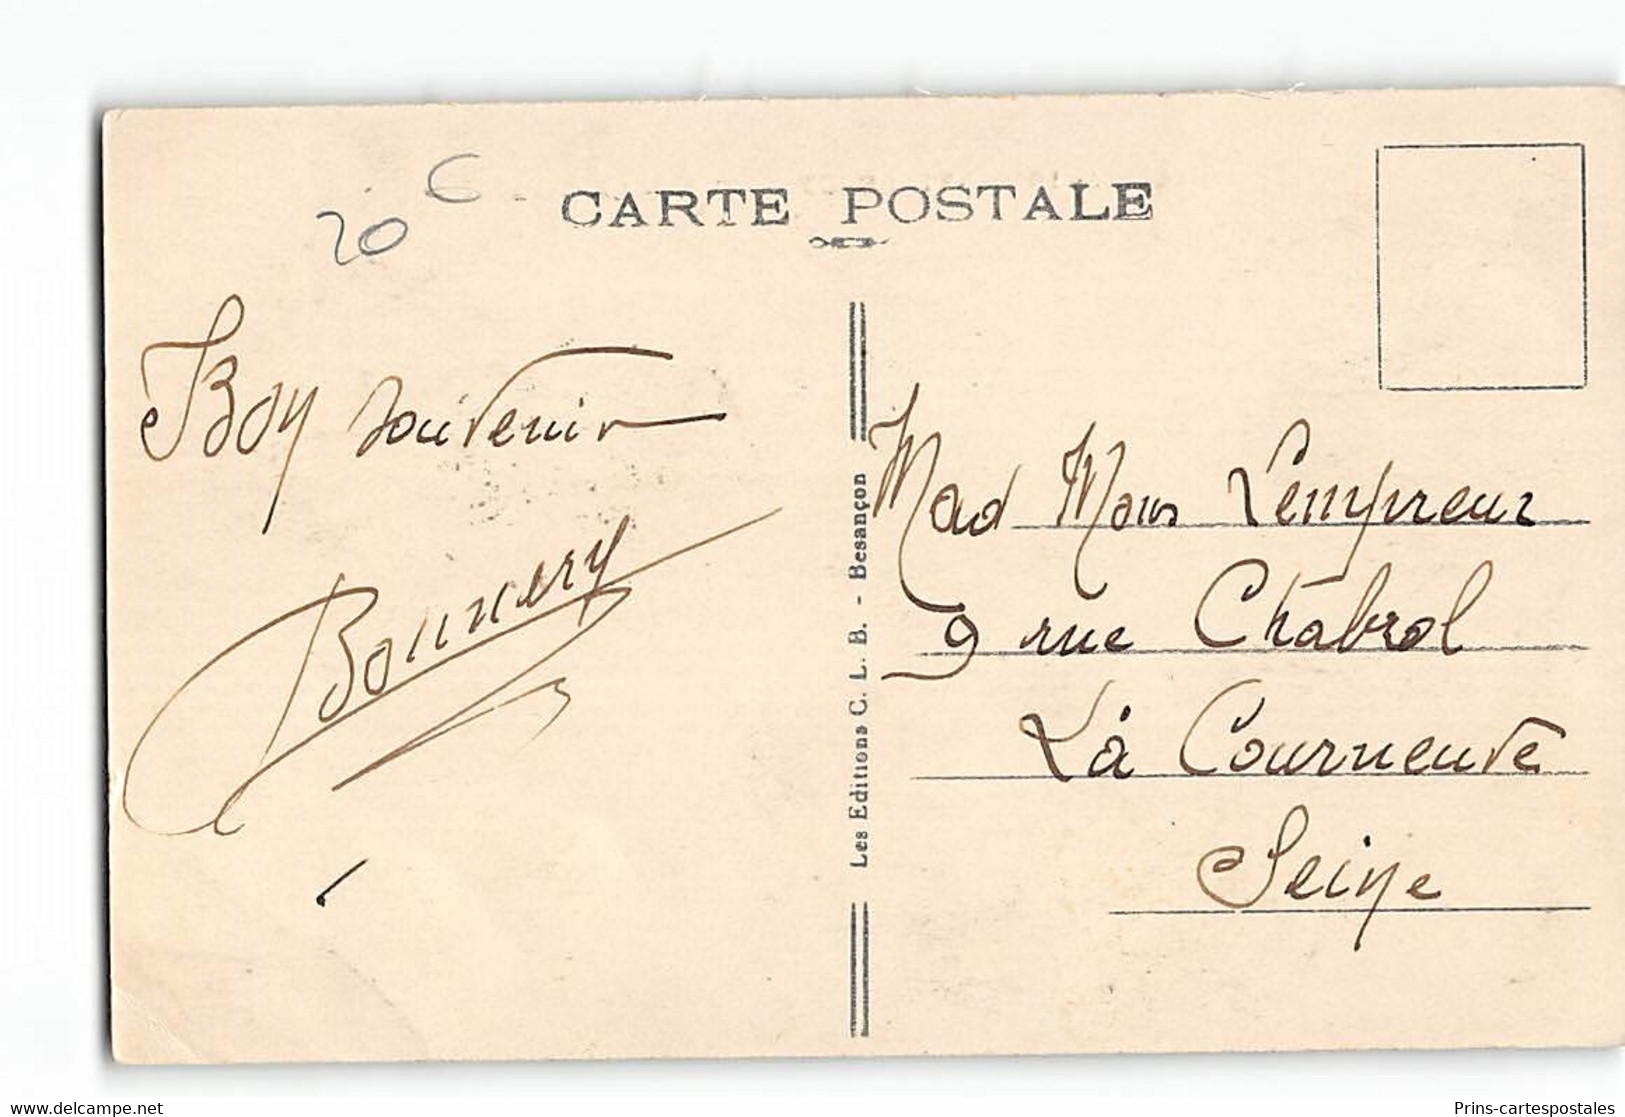 20 €
CARTE POSTALE
Bon souvenir
Les Editions C. L. B. - Besançon
Mad Mons Lempreur
9 rue Chabrol
La Courneuve
Seine
www.delcampe.net
Prins-cartespostales